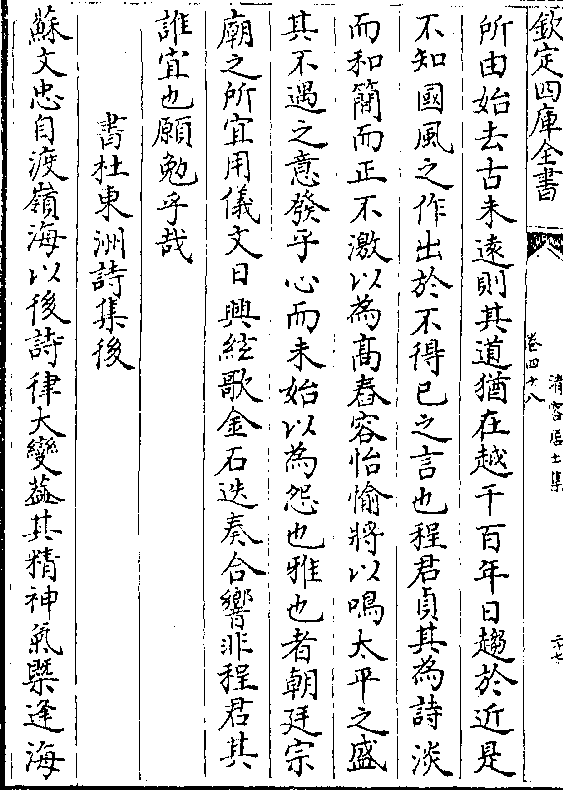 欽定四庫全書
清容居士集
卷四十八
二十七
所由始去古未遠則其道猶在越千百年日趨於近是
不知國風之作出於不得已之言也程君貞其為詩淡
而和簡而正不激以為髙舂容怡愉將以鳴太平之盛
其不遇之意發乎心而未始以為怨也雅也者朝廷宗
廟之所宜用儀文日興絃歌金石迭奏合響非程君其
誰宜也願勉乎哉
書杜東洲詩集後
蘇文忠自渡嶺海以後詩律大變葢其精神氣槩逢海